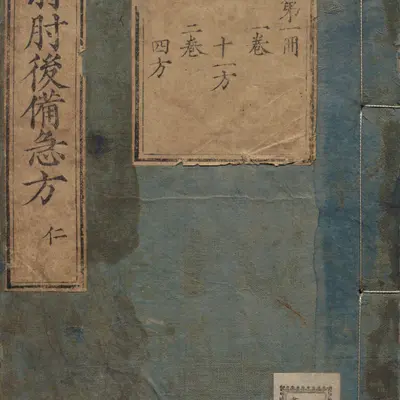 第一冊
一卷
十一方
二卷
四方
肘後備急方
仁